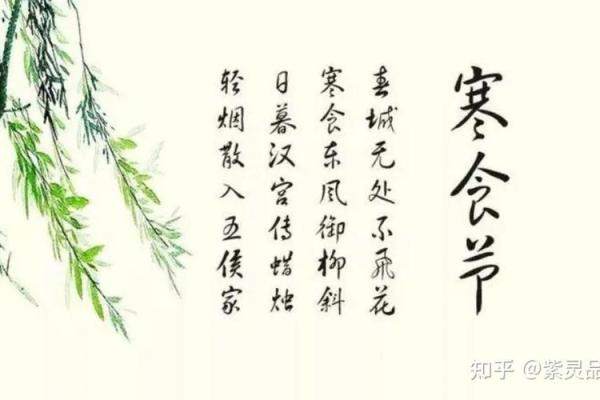 寒食节
春城无处不飛花
寒食东风御柳斜
日暮汉宫传蜡烛
轻烟散入五侯家
知乎 @紫灵品